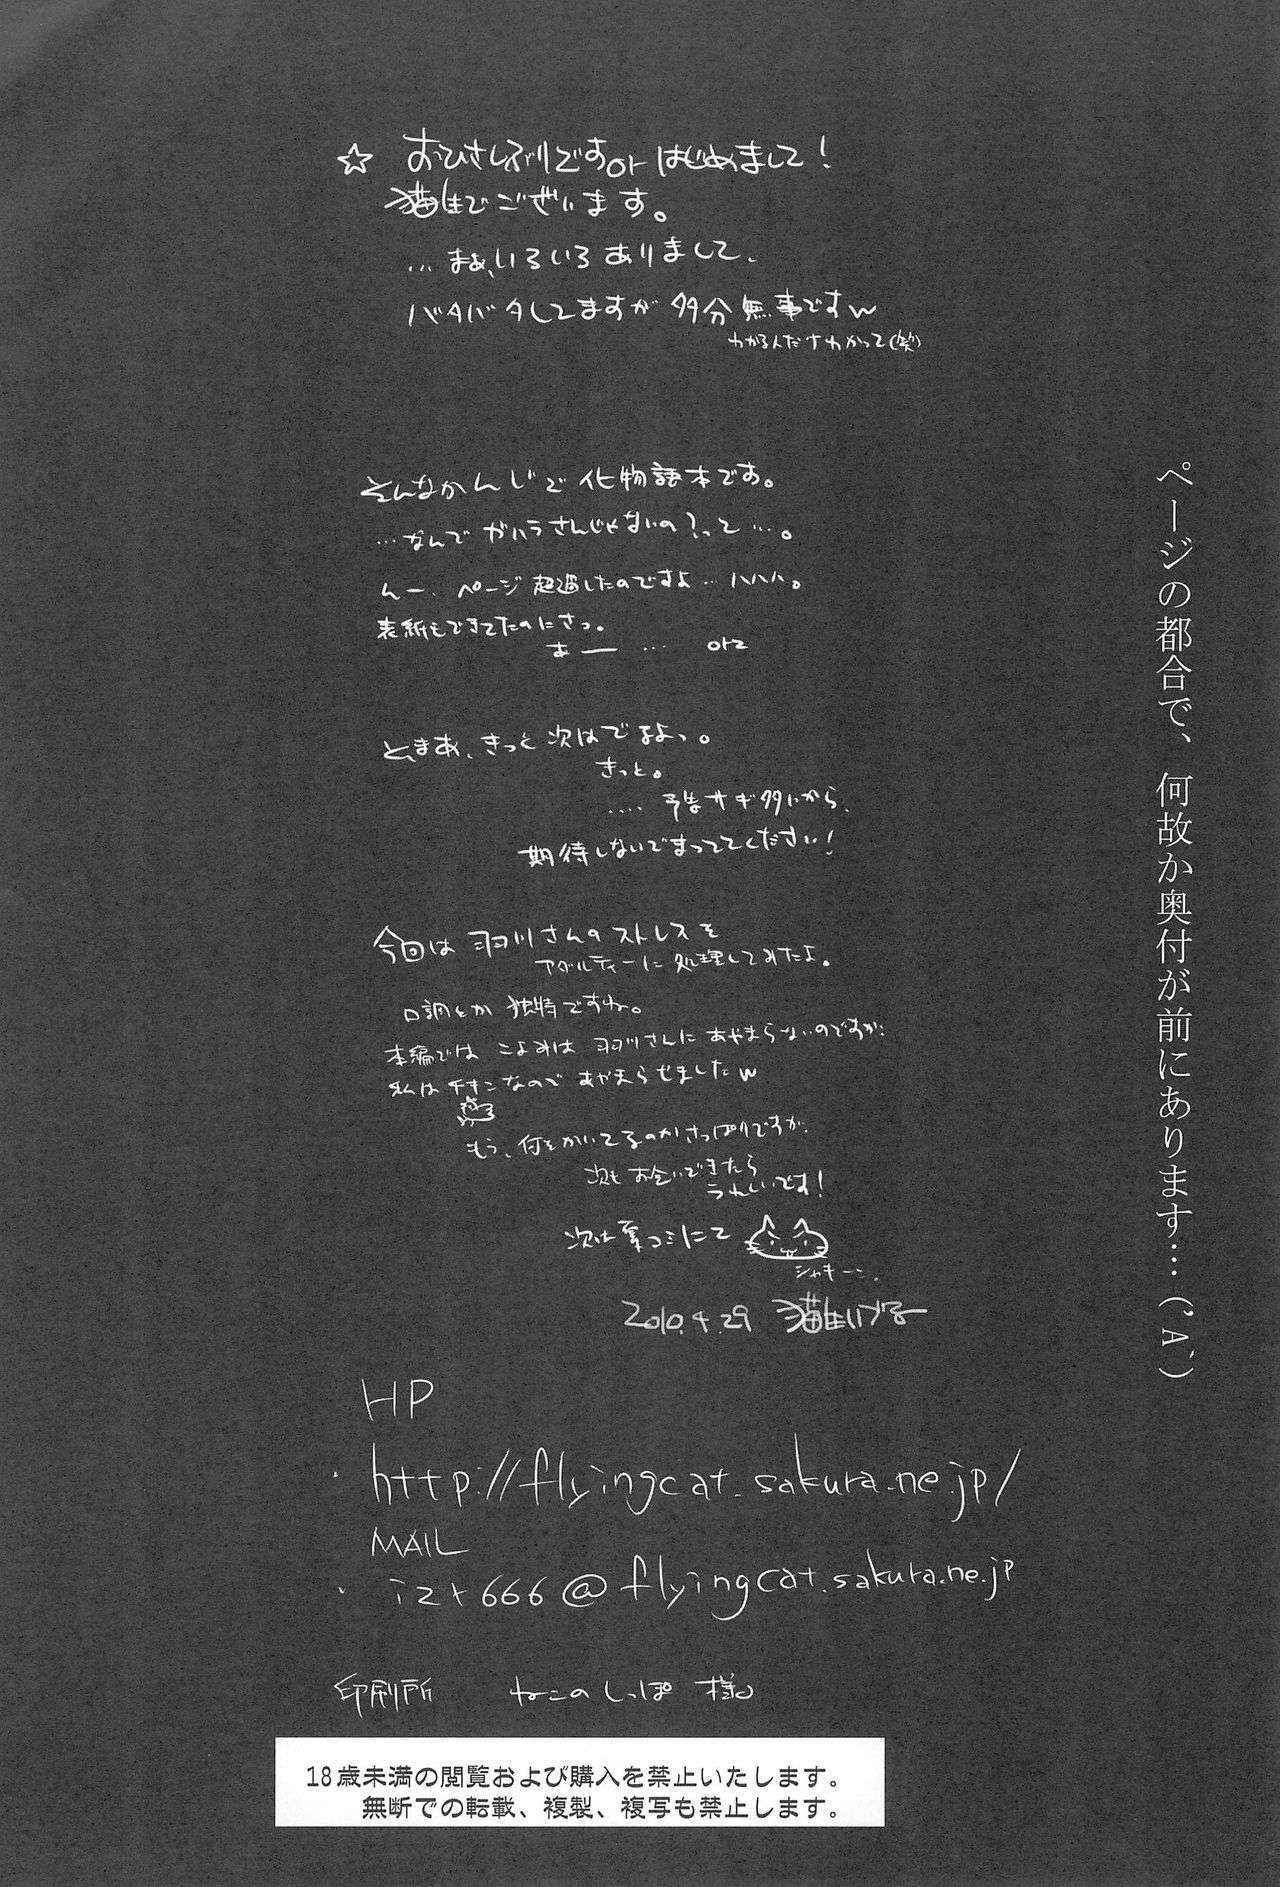 ページの都合で、何故か奥付が前にあります…('A`)
☆ おひさしぶりですorはじめまして!
猫生でございます。
…まぁ、いろいろありまして、
バタバタしてますが多分無事ですw
わかるんだ わかって(笑)
そんなかんじで化物語本です。
…なんでガハラさんじゃないの?って…。
んー、ページ超過したのですよ…ハハハ。
表紙もできてたのにさっ。
あー … orz
と、まあ、きっと次はでるよっ。
きっと。
…‥予告サギ 多いから、
期待しないでまっててください!
今回は羽川さんのストレスを
アダルティーに処理してみたよ。
口調とか独特ですね。
本編ではこよみは羽川さんにあやまらないのですが、
私はチキンなのであやまらせましたw
もう、何をかいてるのかさっぱりですが、
次もお会いできたら
うれしいです!
次は夏コミにて
シャキーン。
2010.4.29 猫生いづる
HP
・http://flyingcat.sakura.ne.jp/
MAIL
・izt666@flyingcat.sakura.ne.jp
印刷所 ねこのしっぽ 様
18歳未満の閲覧および購入を禁止いたします。
無断での転載、複製、複写も禁止します。